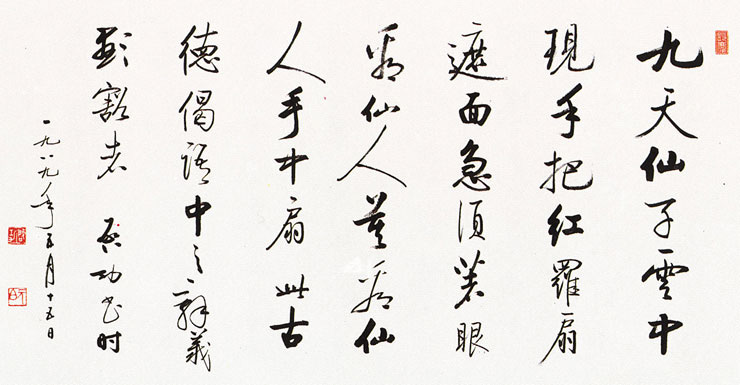 九天仙子雲中
現手把紅羅扇
遮面急須着眼
看仙人莫看仙
人手中扇 此古
德偈語中之義
豁者 启功书时
一九八九年五月十五日